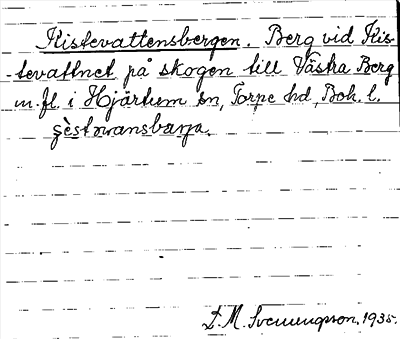 Kistevattensbergen. Berg vid Kis-
-tevattnet på skogen till Västra Berg
m.fl. i Hjärtum sn, Torpe hd, Boh. l.
L. M. Svenungsson, 1935.